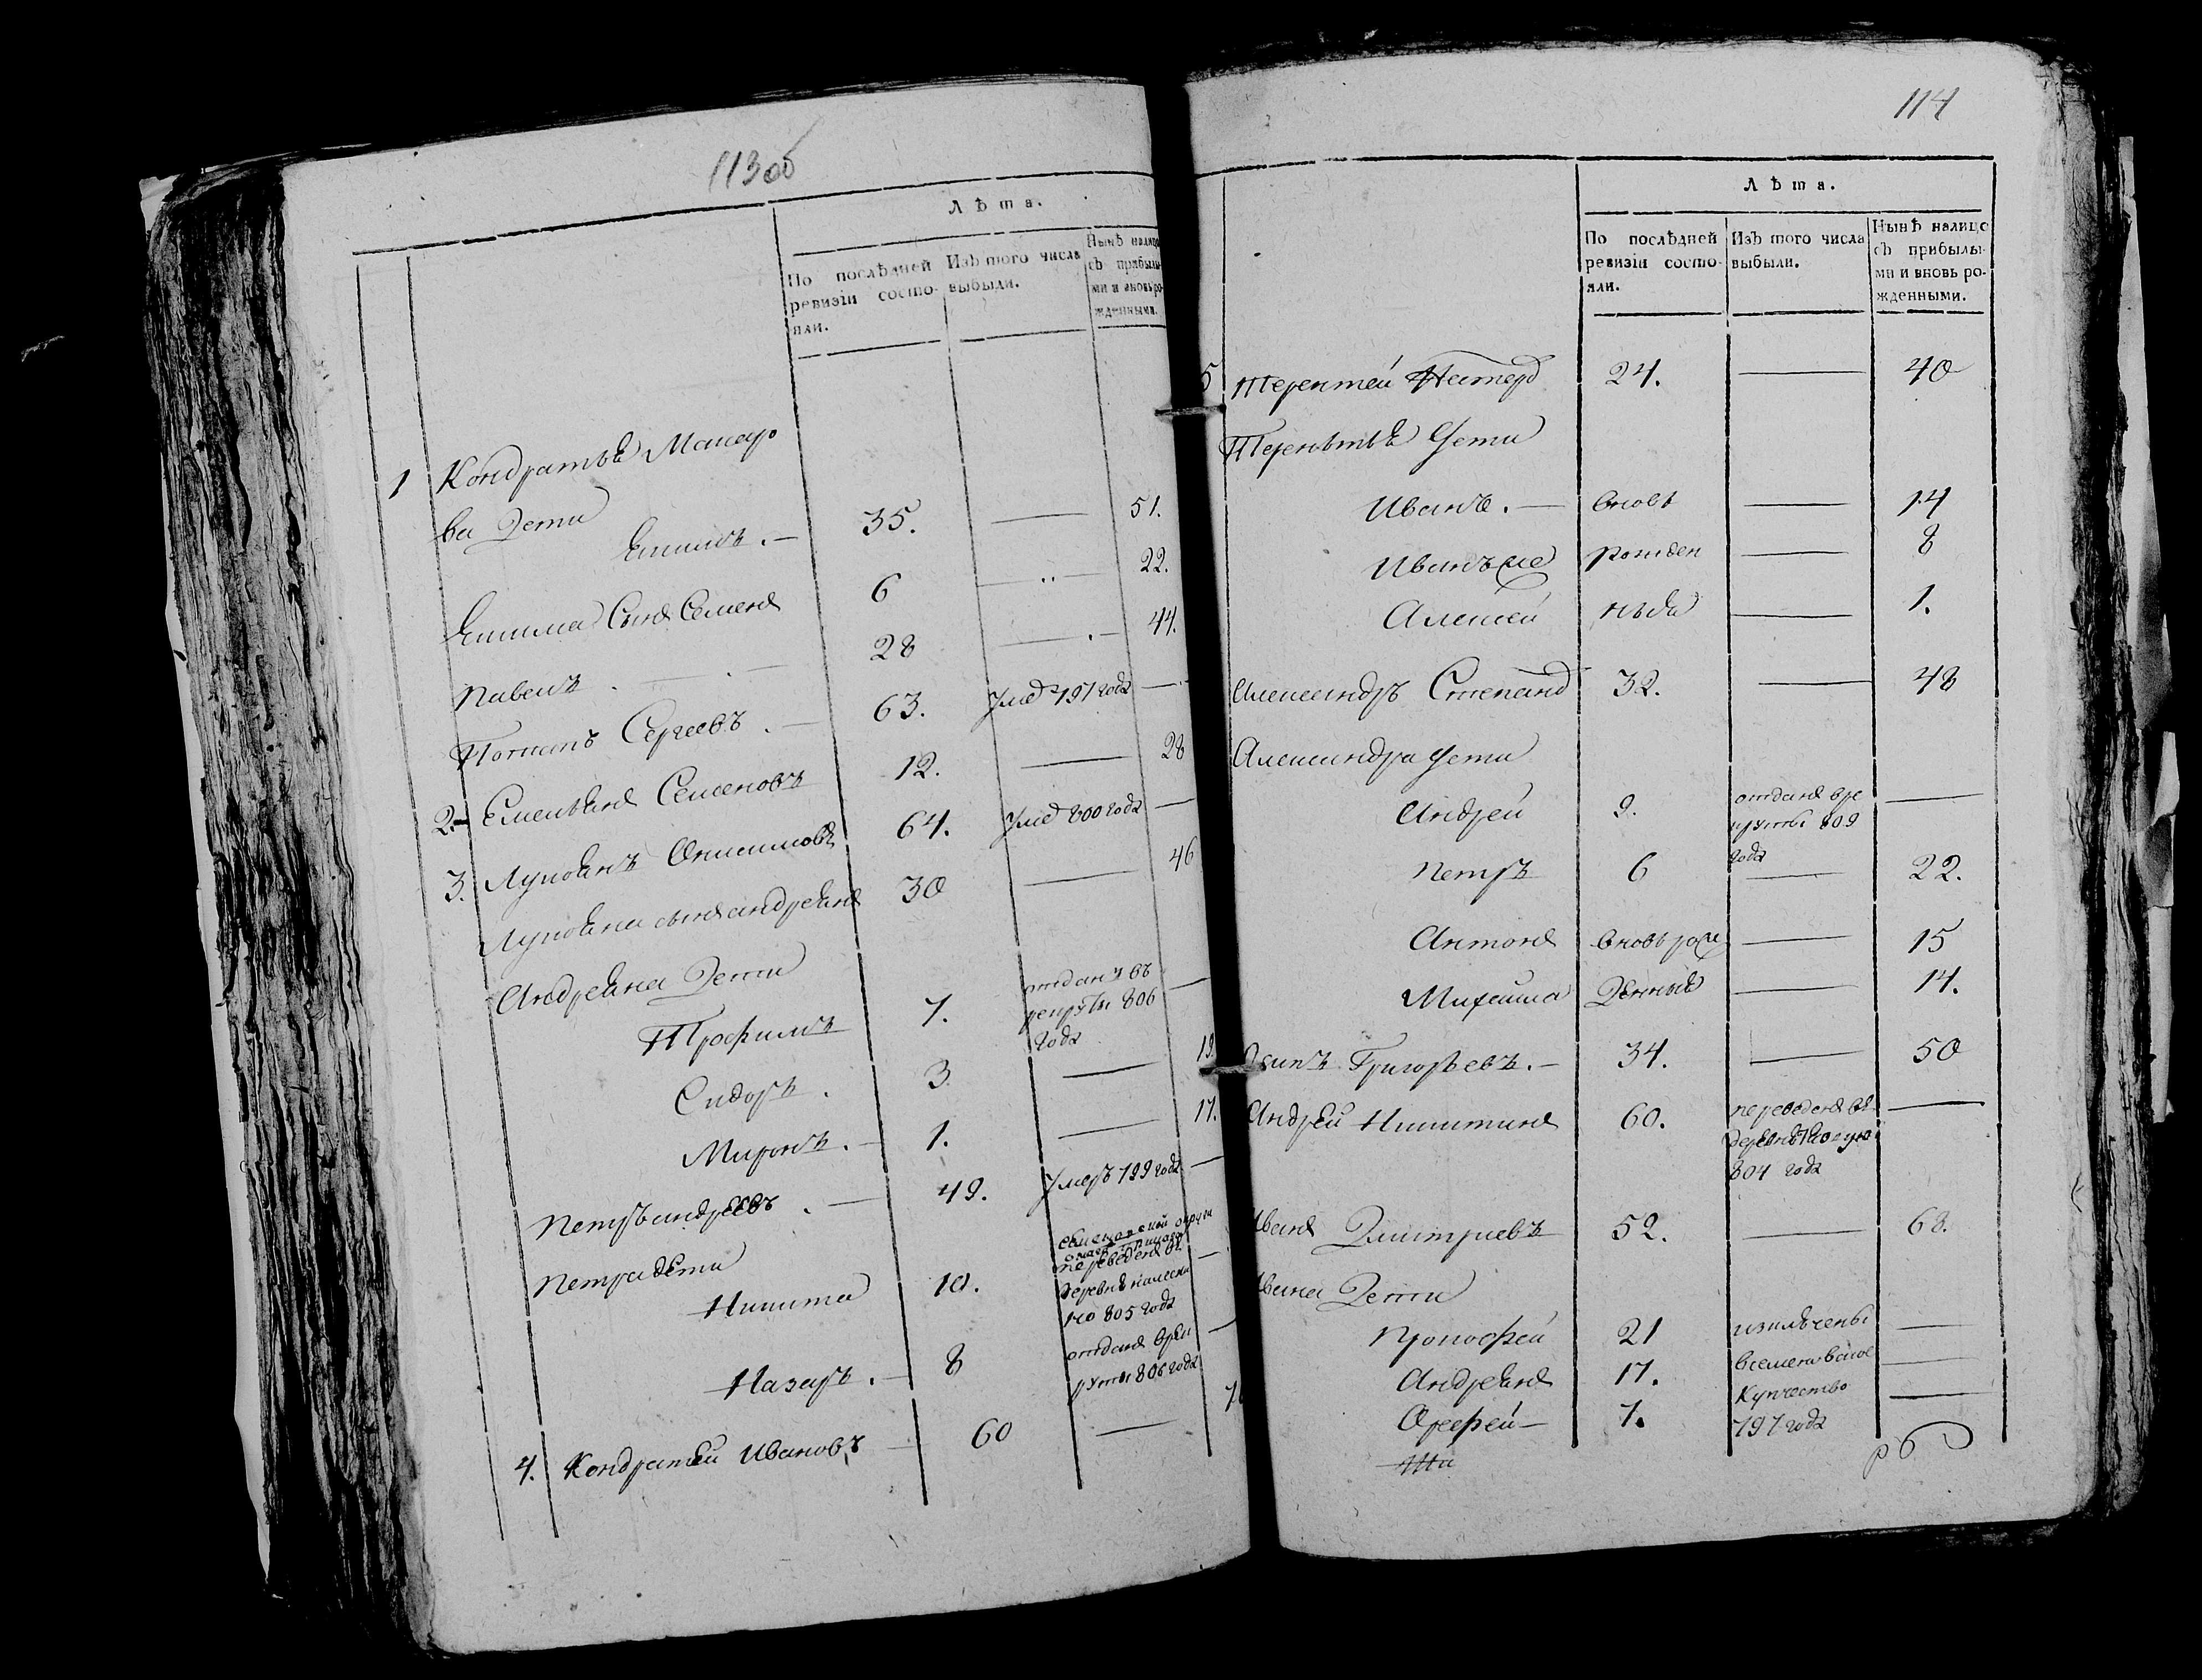 113об
Лѣта.
По послѣдней ревизіи состояли.
Изъ того числа выбыли.
Нынѣ налицо съ прибылыми и вновь рожденными.
1 Кондратья Макаро
ва Дети
Екимъ. — 35. — 51.
Екима Сынъ Семенъ 6 — 22.
Павелъ. — 28 — 44.
Потапъ Сергеевъ. — 63. Умѣ 797 года —
2. Емельянъ Семеновъ 12. — 28
3. Лукьянъ Онисимовъ 64. Умѣ 800 года —
Лукьяна сынъ андреянъ 30 — 46
Андреяна Дети
Трофимъ 7. отданъ въ
рекруты 806 —
года
Сидоръ. 3 — 19.
Миронъ. — 1. — 17.
Петръ андреевъ. — 49. Умеръ 799 года —
Петра дети
Никита 10. переведенъ въ —
805 года
Назаръ. — 8 отданъ врек —
руты 806 года
4. Кондратей Ивановъ — 60 —
114
Лѣта.
По послѣдней ревизіи состояли.
Изъ того числа выбыли.
Нынѣ налицо съ прибылыми и вновь рожденными.
5 Терентей Нестеръ 24. — 40
Терентья Дети
Иванъ. — вновь — 14
Иванъ же рожден — 8
Алексей ныя — 1.
Александръ Степанъ 32. — 48
Александра Дети
Андрей 9. отданъ вре —
круты 809
года
Петръ 6 — 22.
Антонъ вновь рож — 15
Михаила Денныя — 14.
Осипъ Григорьевъ. — 34. — 50
Андрей Никитинъ 60. переведенъ въ —
804 года
Иванъ Дмитриевъ 52. — 68.
Ивана Дети
Прокофей 21 изключены —
Андреянъ 17. всеменовское —
Ерефей — 7. Купечество —
797 года